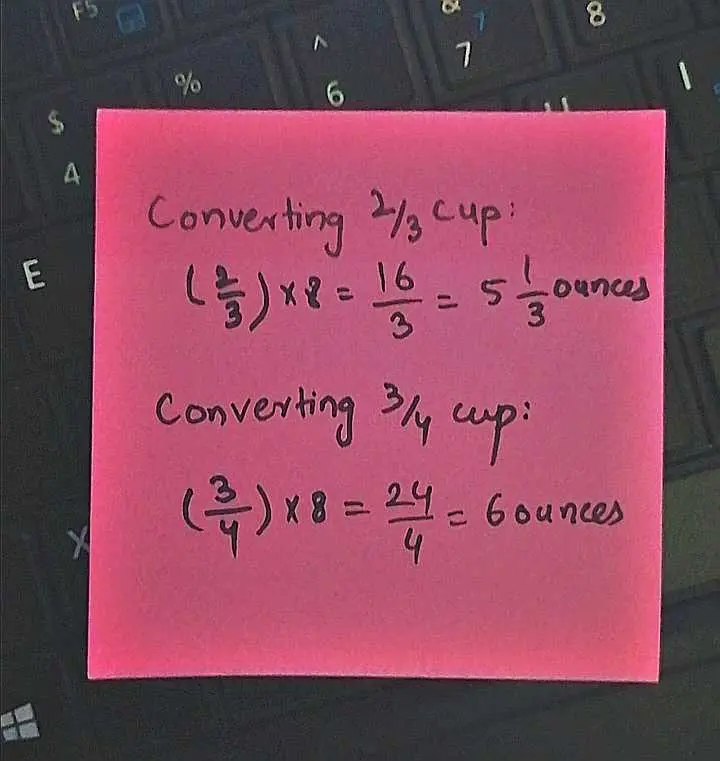 F5
&
7
7
8
^
6
%
$
4
E
X
Converting 2/3 cup:
(2/3) × 8 = 16/3 = 5 1/3 ounces
Converting 3/4 cup:
(3/4) × 8 = 24/4 = 6 ounces